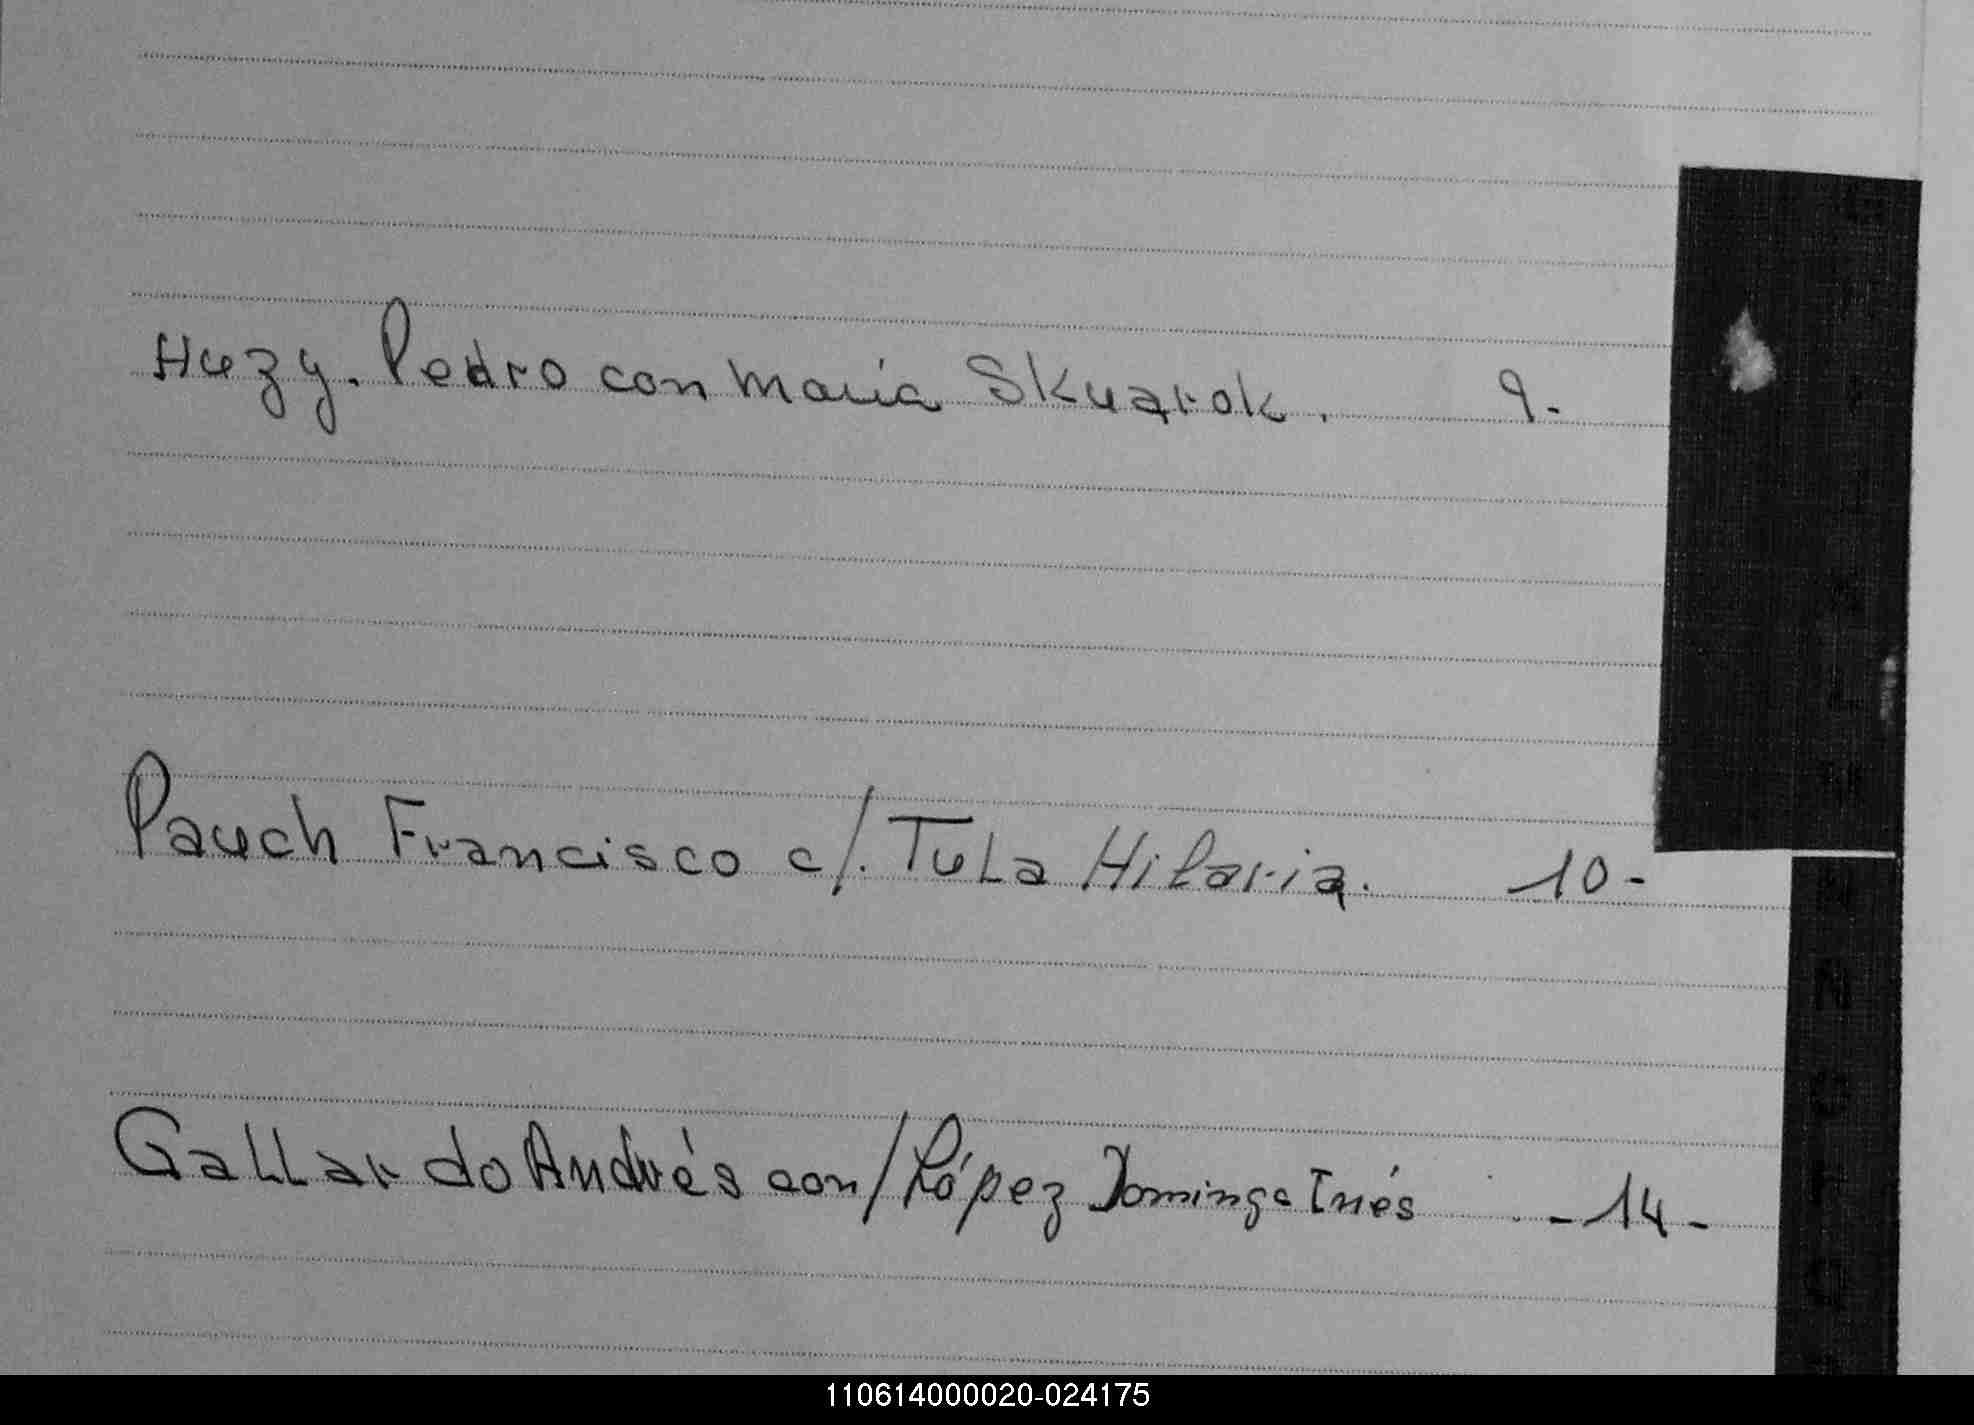 Huzy. Pedro con Maria Skuarok. 9.-
Pauch Francisco c/. Tula Hilaria. 10-
Gallardo Andrés con/ López Dominga Inés - 14 -
110614000020-024175